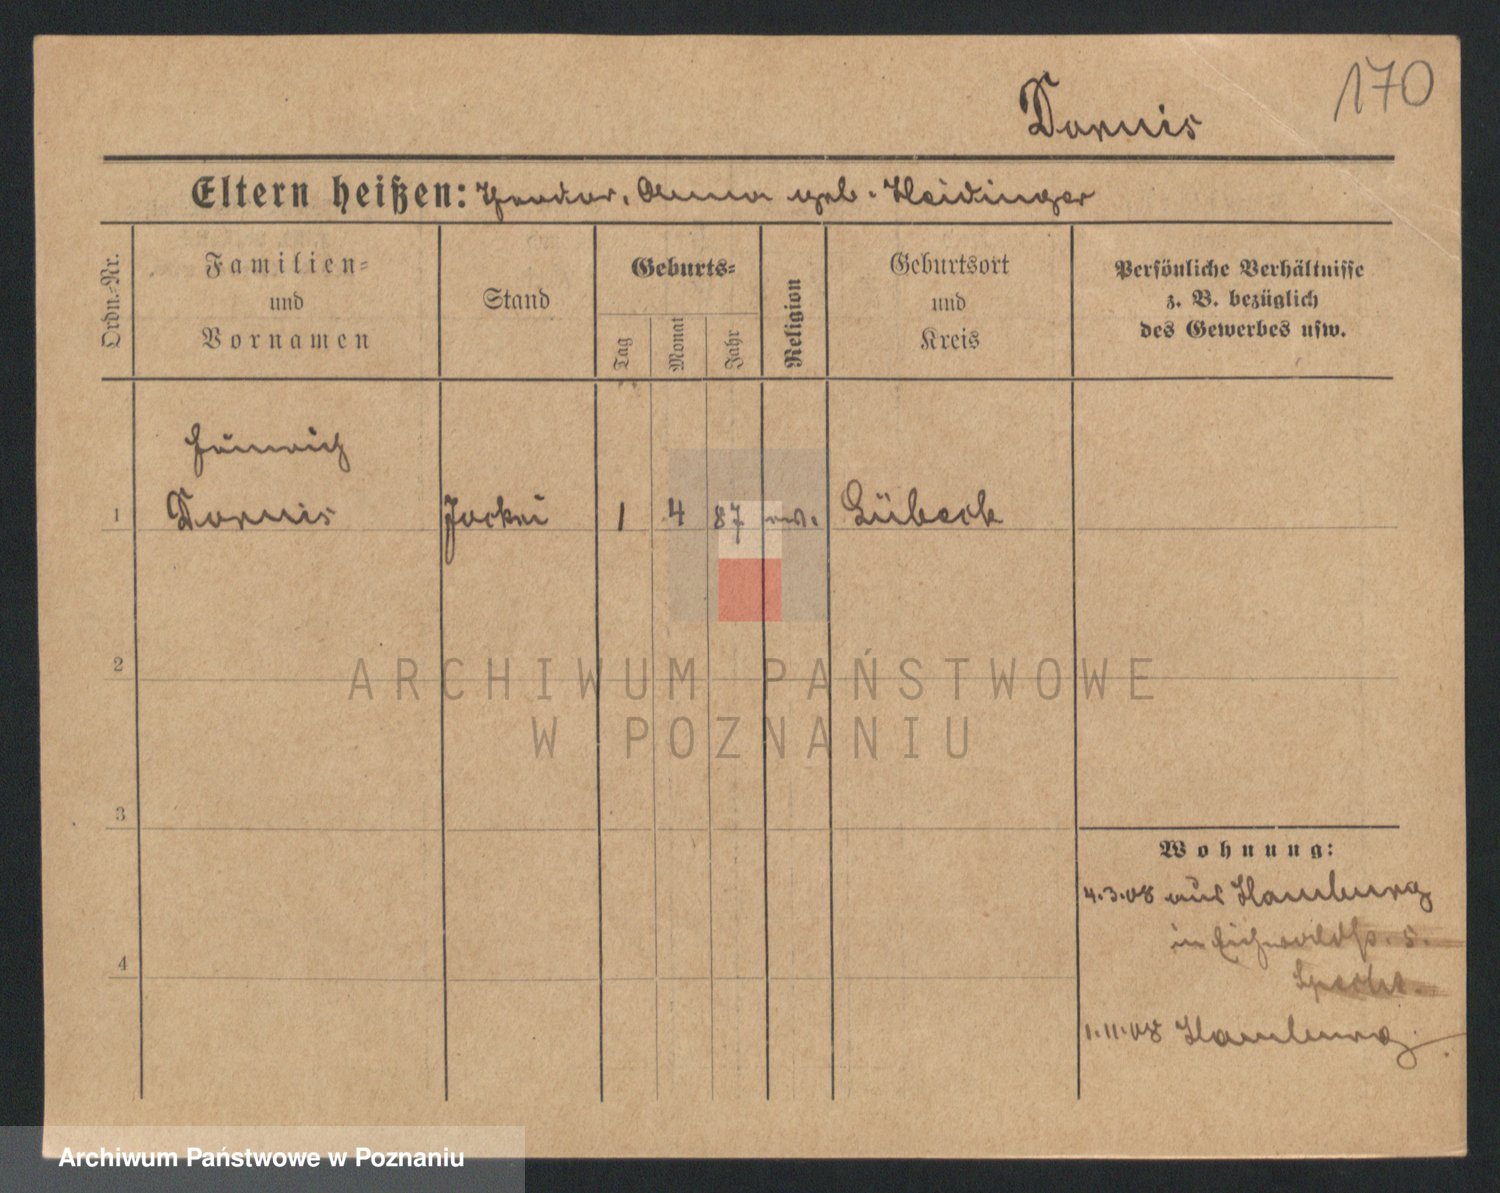 170
Dornis
Eltern heißen: Theodor, Anna geb. Heidinger
Ordn.-Nr.
Familien-
und
Vornamen
Stand
Geburts-
Tag
Monat
Jahr
Religion
Geburtsort
und
Kreis
Persönliche Verhältnisse
z. B. bezüglich
des Gewerbes usw.
Heinrich
1 Dornis Jockei 1 4 87 ev. Lübeck
2
3
4
Wohnung:
4.3.08 aus Hamburg
in Eichwaldstr. 5.
Specht.
1.11.08 Hamburg.
ARCHIWUM PAŃSTWOWE
W POZNANIU
Archiwum Państwowe w Poznaniu